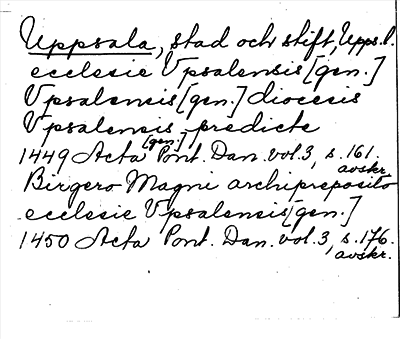 Uppsala, stad och stift, Upps. l.
ecclesie Vpsalensis [gen.]
Vpsalensis [gen.] diocesis
Vpsalensis [gen.] predicte
1449 Acta Pont. Dan. vol. 3, s. 161.
avskr.
Birgero Magni archipreposito
ecclesie Vpsalensis [gen.]
1450 Acta Pont. Dan. vol. 3, s. 176.
avskr.